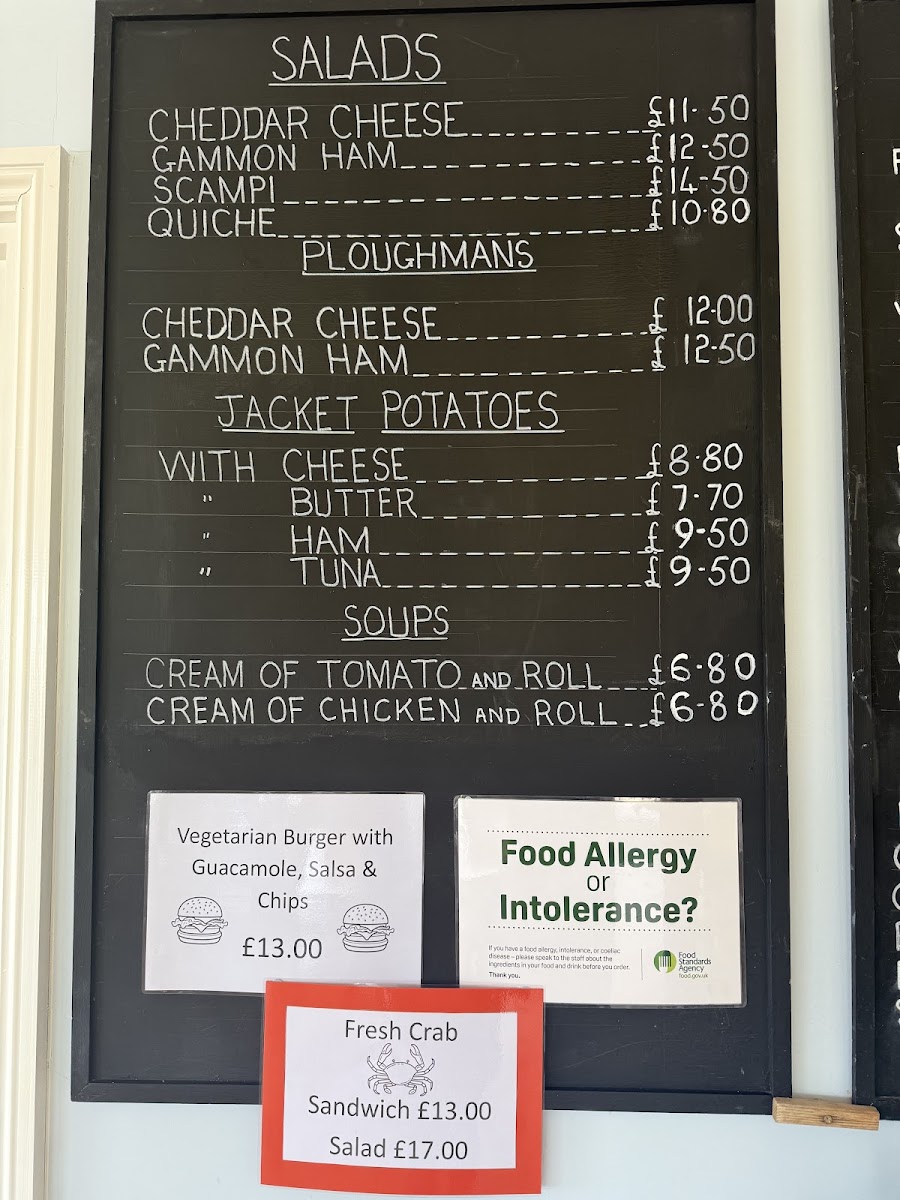 SALADS
CHEDDAR CHEESE £11.50
GAMMON HAM £12-50
SCAMPI £14-50
QUICHE £10.80
PLOUGHMANS
CHEDDAR CHEESE £ 12.00
GAMMON HAM £ 12-50
JACKET POTATOES
WITH CHEESE £8.80
" BUTTER £7.70
" HAM £9-50
" TUNA £9.50
SOUPS
CREAM OF TOMATO AND ROLL £6.80
CREAM OF CHICKEN AND ROLL £6-80
Vegetarian Burger with
Guacamole, Salsa &
Chips
£13.00
Food Allergy
or
Intolerance?
If you have a food allergy, intolerance, or coeliac
disease – please speak to the staff about the
ingredients in your food and drink before you order.
Thank you.
Food
Standards
Agency
food.gov.uk
Fresh Crab
Sandwich £13.00
Salad £17.00